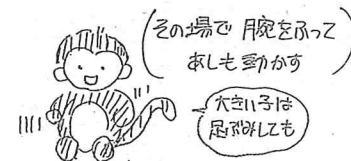 その場で 腕をふって
あしも動かす
大きい子は
足ぶみしても